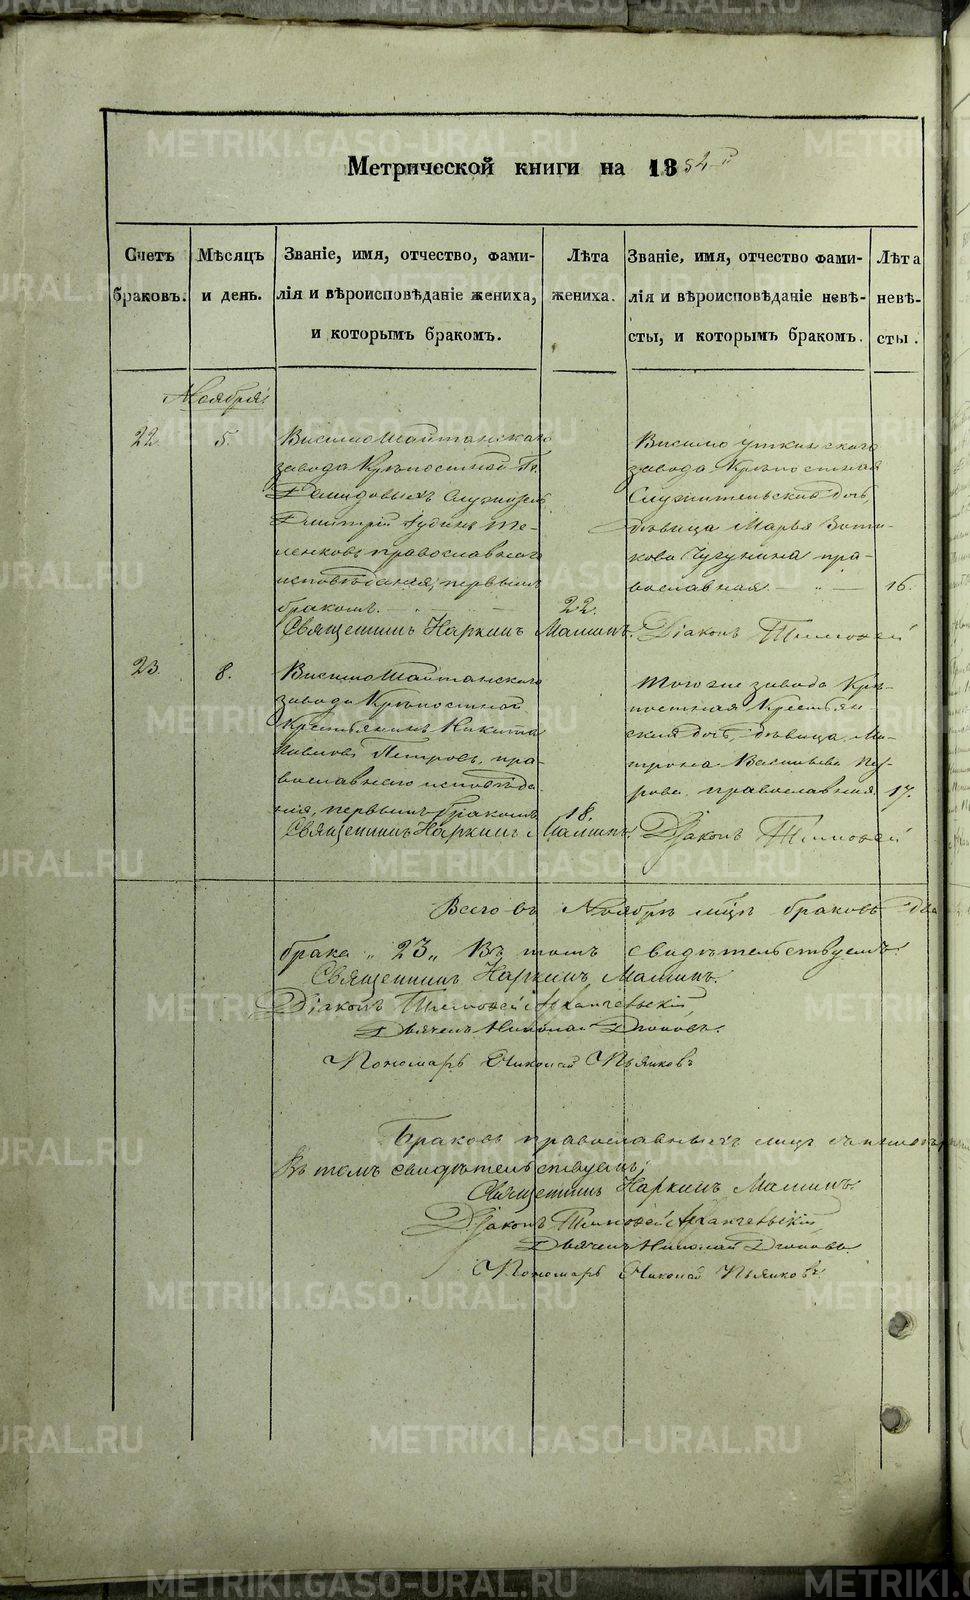 Метрической книги на 1854 г
Счетъ браковъ.
Мѣсяцъ и день.
Званіе, имя, отчество, фами-
лія и вѣроисповѣданіе жениха,
и которымъ бракомъ.
Лѣта жениха.
Званіе, имя, отчество фами-
лія и вѣроисповѣданіе невѣ-
сты, и которымъ бракомъ.
Лѣта невѣ-
сты.
Ноября
22. 5.
Висимошайтанскаго
завода Крѣпостной Гг.
Демидовыхъ Служитель
Дмитрій Іудинъ
православнаго
исповѣданія, первымъ
бракомъ.
22.
Висимо уткинскаго
завода Крѣпостная
Служительская дочь,
дѣвица Марья Зоти-
кова Чугунина пра-
вославная.
16.
Священникъ Наркисъ Маминъ. Діаконъ Тимофей
23. 8.
Висимошайтанскаго
завода Крѣпостной
Крестьянинъ Никита
Павловъ Петровъ, пра-
вославнаго исповѣда-
нія, первымъ бракомъ
18.
Того же завода Крѣ-
постная Крестьян-
ская дочь, дѣвица Ма-
трона Васильева
православная
17.
Священникъ Наркисъ Маминъ. Діаконъ Тимофей
Всего въ Ноябрѣ мцѣ браковъ два
брака „23„ Въ томъ свидѣтельствуемъ:
Священникъ Наркисъ Маминъ.
Діаконъ Тимофей Архангельскій
Дьячекъ Николай
Пономарь Николай Пьянковъ
Браковъ православныхъ лицъ съ
Въ томъ свидѣтельствуемъ:
Священникъ Наркисъ Маминъ.
Діаконъ Тимофей Архангельскій
Дьячекъ Николай
Пономарь Николай Пьянковъ
METRIKI.GASO-URAL.RU